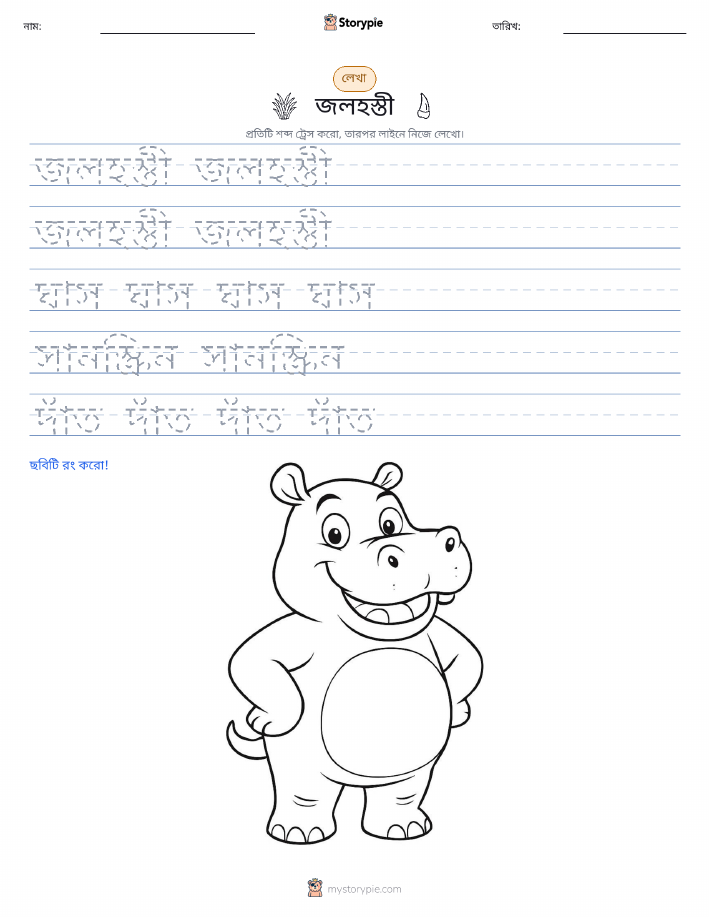 নাম: Storypie তারিখ:
লেখা
জলহস্তী
প্রতিটি শব্দ ট্রেস করো, তারপর লাইনে নিজে লেখো।
জলহস্তী জলহস্তী
জলহস্তী জলহস্তী
ঘাস ঘাস ঘাস ঘাস
সানস্ক্রিন সানস্ক্রিন
দাঁত দাঁত দাঁত দাঁত
ছবিটি রং করো!
mystorypie.com